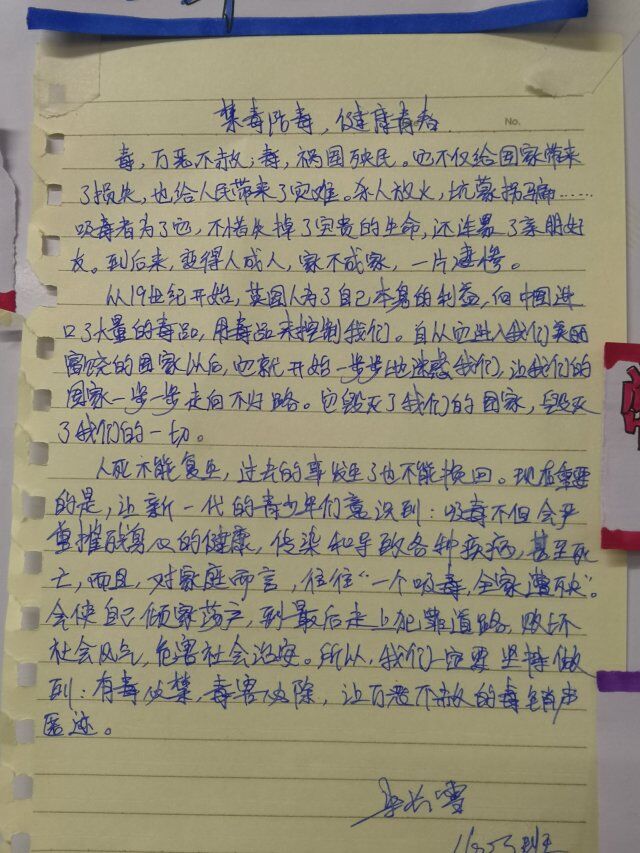 禁毒防毒，健康青春
No.
毒，万恶不赦；毒，祸国殃民。它不仅给国家带来
了损失，也给人民带来了灾难。杀人放火，坑蒙拐骗……
吸毒者为了它，不惜失掉了宝贵的生命，还连累了亲朋好
友。到后来，变得人成人，家不成家，一片凄惨。
从19世纪开始，英国人为了自己本身的利益，向中国进
口了大量的毒品，用毒品来控制我们。自从它进入我们美丽
富饶的国家以后，它就开始一步步地迷惑我们，让我们的
国家一步一步走向不归路。它毁灭了我们的国家，毁灭
了我们的一切。
人死不能复生，过去的事发生了也不能挽回。现在重要
的是，让新一代的青少年们意识到：吸毒不但会严
重摧残身心的健康，传染和导致各种疾病，甚至死
亡，而且，对家庭而言，往往“一个吸毒，全家遭殃”。
会使自己倾家荡产，到最后走上犯罪道路，败坏
社会风气，危害社会治安。所以，我们一定要坚持做
到：有毒必禁，毒害必除，让万恶不赦的毒销声
匿迹。